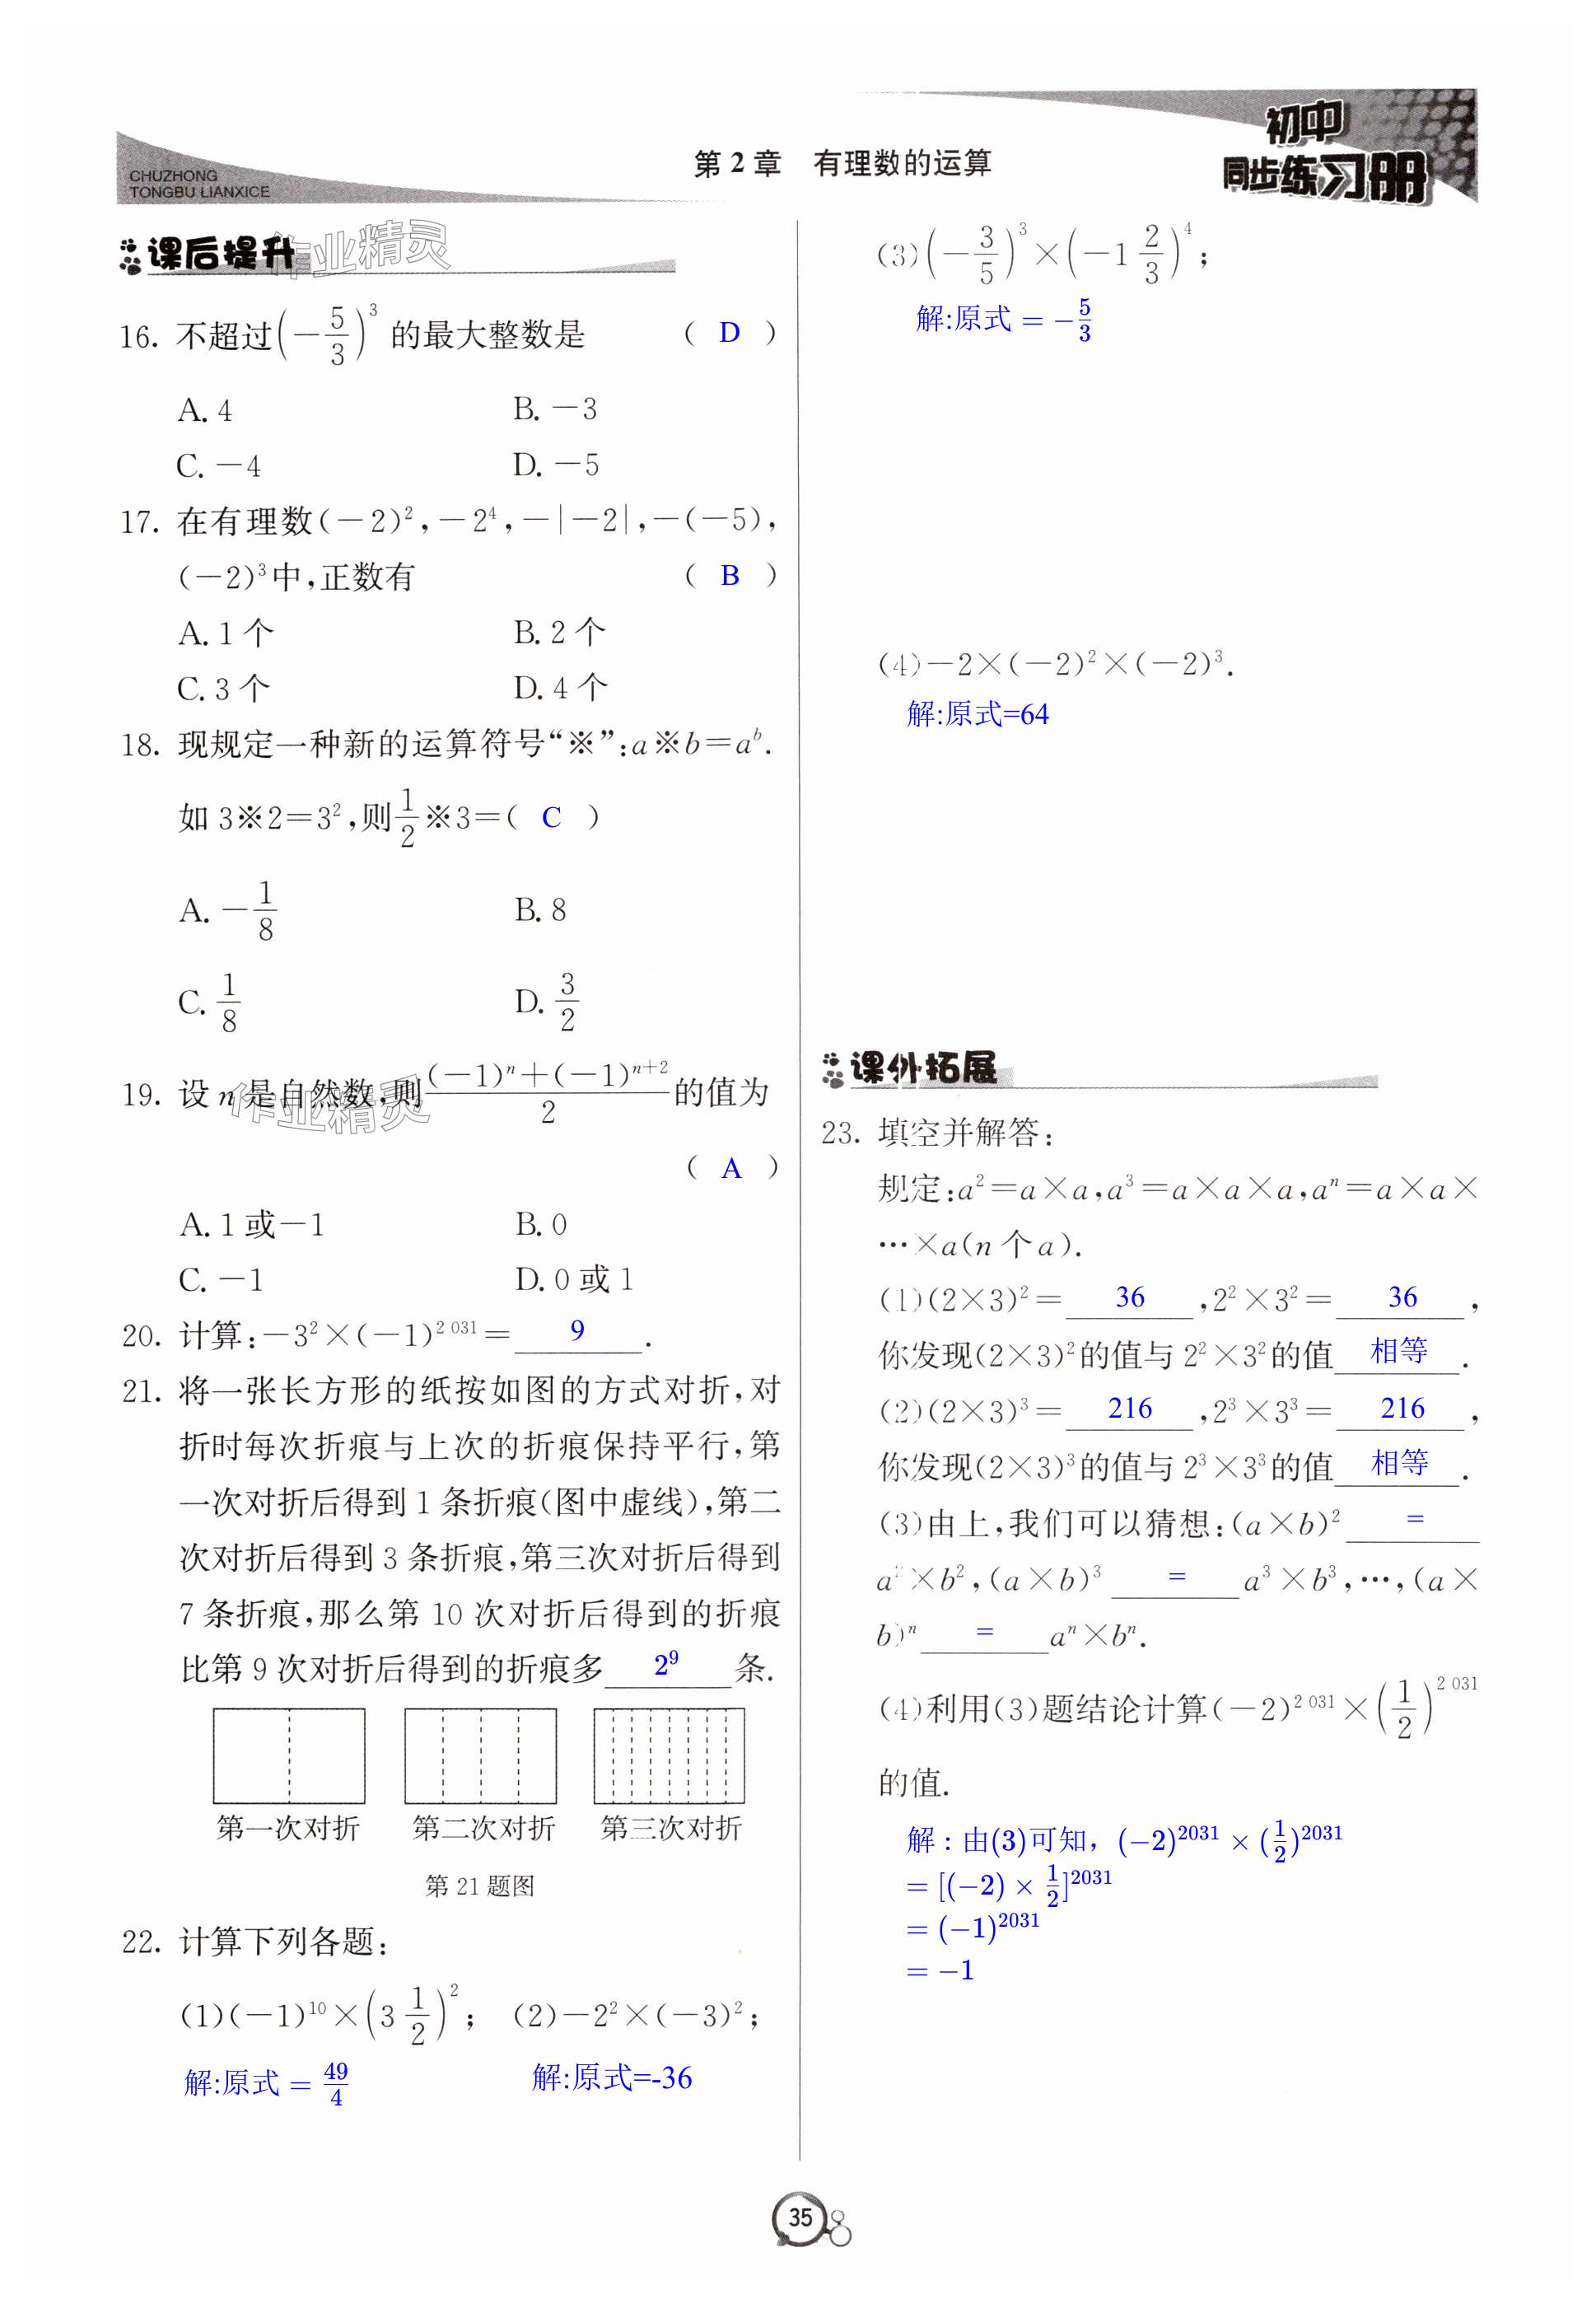 CHUZHONG
TONGBU LIANXICE
第2章 有理数的运算
初中
同步练习册
课后提升
作业精灵
16. 不超过(-5/3)³的最大整数是 ( D )
A. 4 B. -3
C. -4 D. -5
17. 在有理数(-2)²,-2⁴,-|-2|,-(-5),
(-2)³中,正数有 ( B )
A. 1个 B. 2个
C. 3个 D. 4个
18. 现规定一种新的运算符号“※”:a※b=aᵇ.
如3※2=3²,则1/2※3=( C )
A. -1/8 B. 8
C. 1/8 D. 3/2
19. 设n是自然数,则((-1)ⁿ+(-1)ⁿ⁺²)/2的值为
作业精灵
( A )
A. 1或-1 B. 0
C. -1 D. 0或1
20. 计算:-3²×(-1)² ⁰³¹= 9 .
21. 将一张长方形的纸按如图的方式对折,对
折时每次折痕与上次的折痕保持平行,第
一次对折后得到1条折痕(图中虚线),第二
次对折后得到3条折痕,第三次对折后得到
7条折痕,那么第10次对折后得到的折痕
比第9次对折后得到的折痕多 2⁹ 条.
第一次对折 第二次对折 第三次对折
第21题图
22. 计算下列各题:
(1)(-1)¹⁰×(3 1/2)²; (2)-2²×(-3)²;
解:原式=49/4 解:原式=-36
(3)(-3/5)³×(-1 2/3)⁴;
解:原式=-5/3
(4)-2×(-2)²×(-2)³.
解:原式=64
课外拓展
23. 填空并解答:
规定:a²=a×a,a³=a×a×a,aⁿ=a×a×
…×a(n个a).
(1)(2×3)²= 36 ,2²×3²= 36 ,
你发现(2×3)²的值与2²×3²的值 相等 .
(2)(2×3)³= 216 ,2³×3³= 216 ,
你发现(2×3)³的值与2³×3³的值 相等 .
(3)由上,我们可以猜想:(a×b)² =
a²×b²,(a×b)³ = a³×b³,…,(a×
b)ⁿ = aⁿ×bⁿ.
(4)利用(3)题结论计算(-2)² ⁰³¹×(1/2)² ⁰³¹
的值.
解:由(3)可知,(-2)²⁰³¹×(1/2)²⁰³¹
=[(-2)×1/2]²⁰³¹
=(-1)²⁰³¹
=-1
35